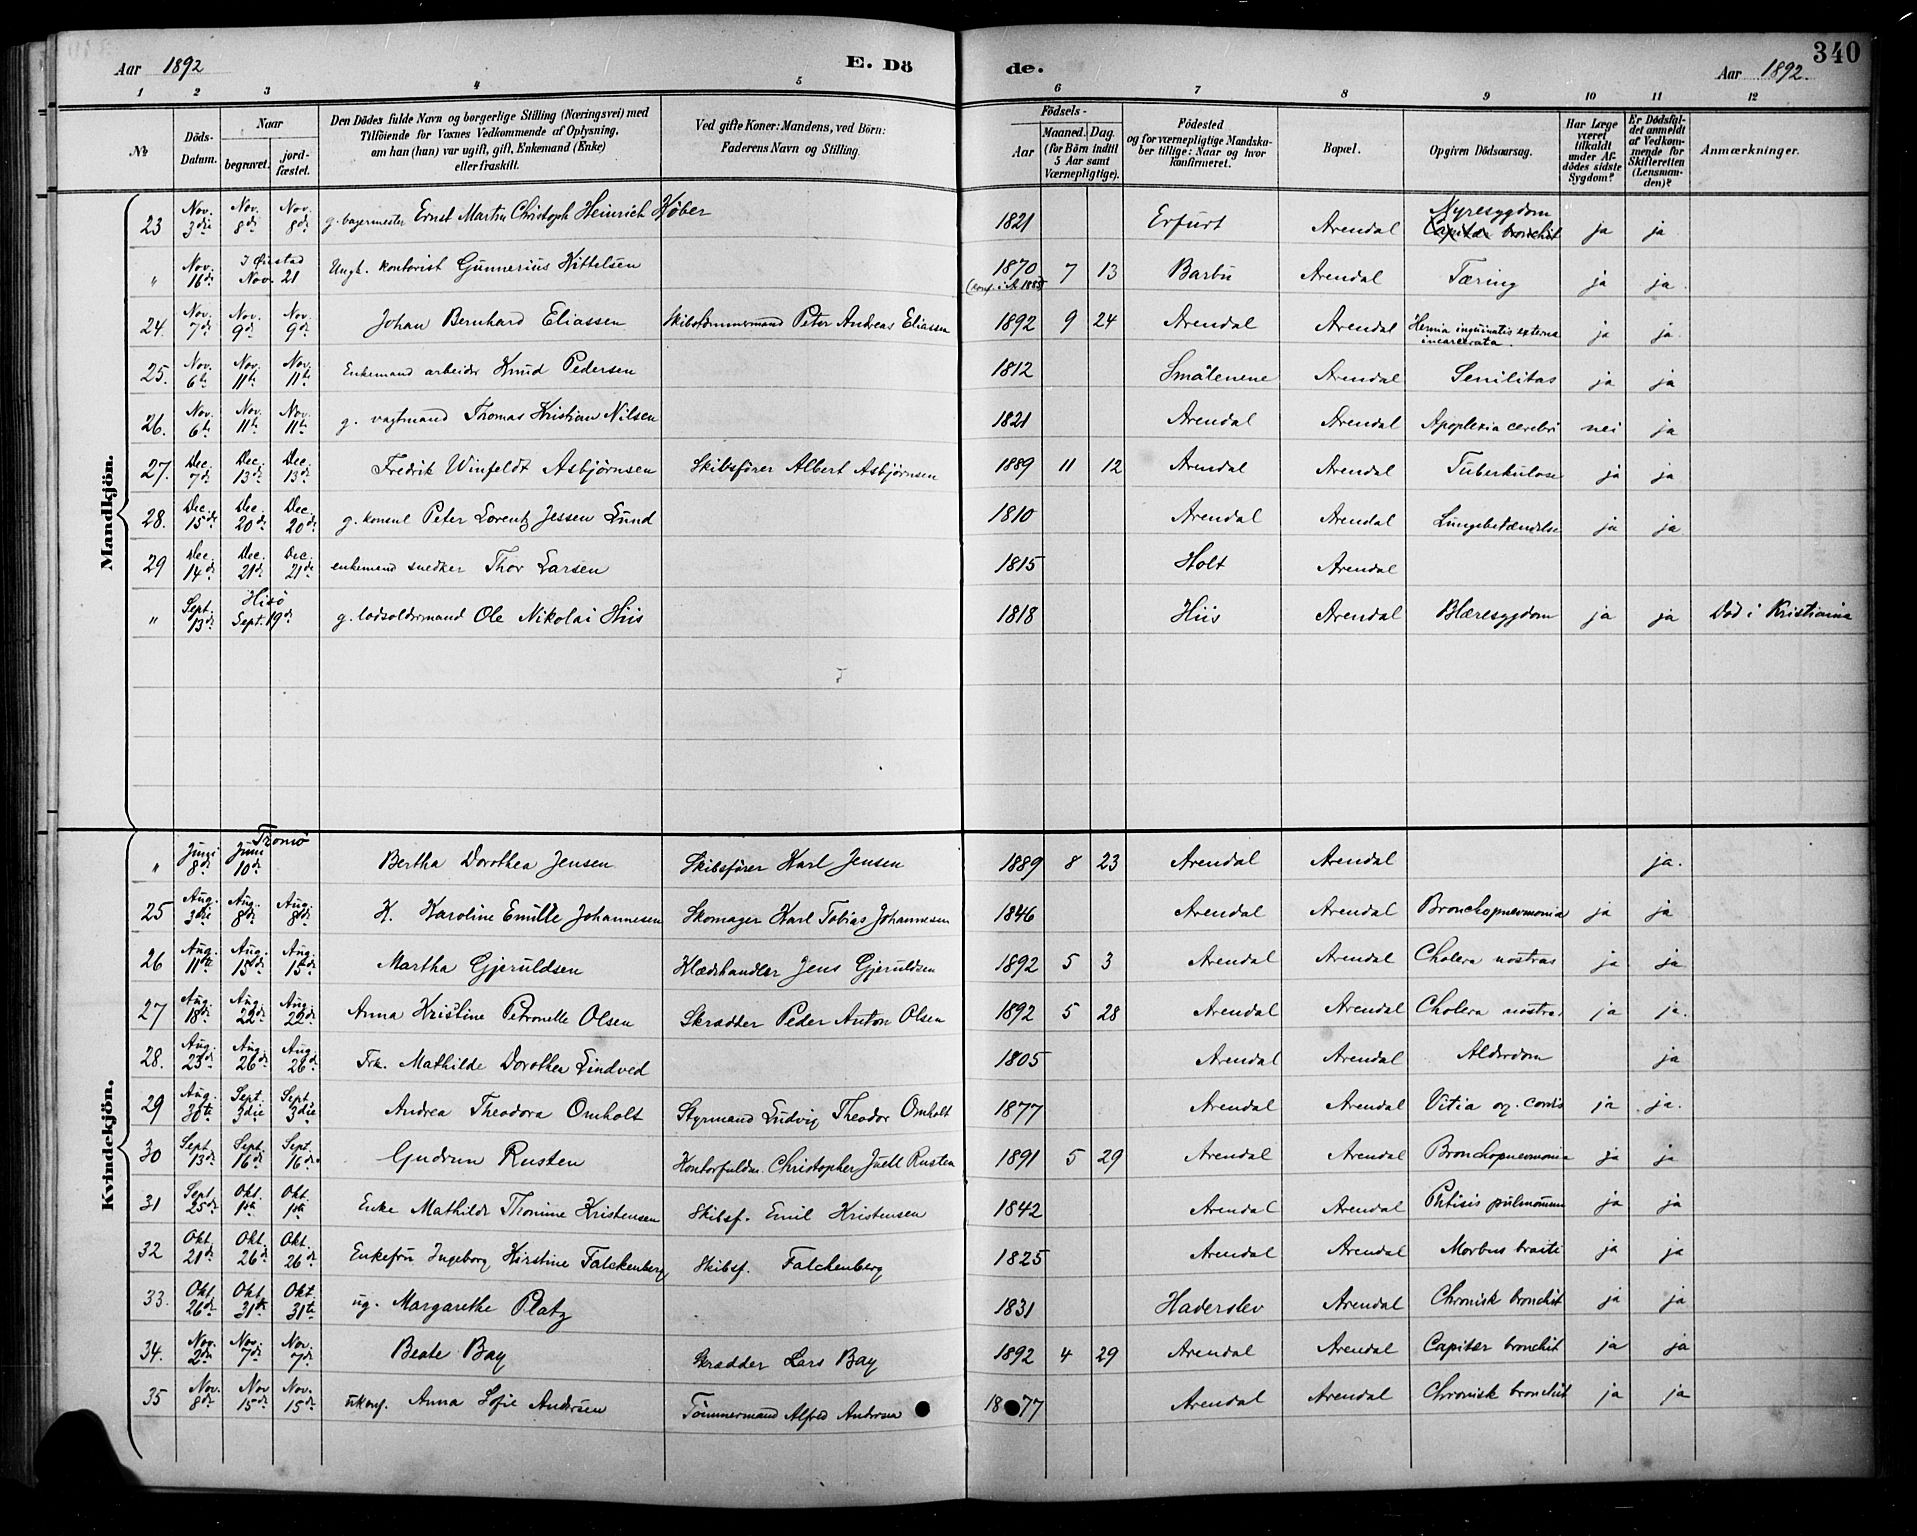 340
Aar 1892 E. Dö de. Aar 1892.
1 2 3 4 5 6 7 8 9 10 11 12
№ Döds-Datum. Naar begravet. jord-fæstet. Den Dödes fulde Navn og borgerlige Stilling (Næringsvei) med Tilföiende for Voxnes Vedkommende af Oplysning, om han (hun) var ugift, gift, Enkemand (Enke) eller fraskilt. Ved gifte Koner: Mandens, ved Börn: Faderens Navn og Stilling. Födsels- Aar Maaned. Dag. (for Börn indtil 5 Aar samt Værnepligtige). Födested og for værnepligtige Mandskaber tillige: Naar og hvor konfirmeret. Bopæl. Opgiven Dödsaarsag. Har Læge været tilkaldt under Afdödes sidste Sygdom? Er Dödsfaldet anmeldt af Vedkommende for Skifteretten (Lensmanden)? Anmærkninger.
Mandkjön.
23 Nov. 3die Nov. 8de Nov. 8de g. bagermester Ernst Martin Christoph Heinrich Köber 1821 Erfurt Arendal Nyresygdom Capilær bronchit ja ja
" Nov. 16de I Øiestad Nov. 21 Ungk. kontorist Gunnerius Kittelsen 1870 (konf. i A. 1885) 7 13 Barbu Arendal Tæring ja ja.
24. Nov. 7de Nov. 9de Nov. 9de Johan Bernhard Eliassen Skibstømmermand Peter Andreas Eliassen 1892 9 24 Arendal Arendal Hernia inguinalis externa incarcerata. ja ja.
25. Nov. 6te Nov. 11te Nov. 11te Enkemand arbeider Knud Pedersen 1812 Smålenene Arendal Senilitas ja ja
26. Nov. 6te Nov. 11te Nov. 11te g. vagtmand Thomas Kristian Nilsen 1821 Arendal Arendal Apoplexia cerebri nei ja
27. Dec. 7de Dec. 13de Dec. 13de Fredrik Winfeldt Asbjørnsen Skibsfører Albert Asbjørnsen 1889 11 12 Arendal Arendal Tuberkulose ja ja
28. Dec. 15de Dec. 20de Dec. 20de g. konsul Peter Lorentz Jessen Lund 1810 Arendal Arendal Lungebetændelse ja ja
29 Dec. 14de Dec. 21de Dec. 21de enkemand snedker Thor Larsen 1815 Holt Arendal
" Sept. 13de Hisø Sept. 19de g. lodsoldermand Ole Nikolai Hiis 1818 Hiis Arendal Blæresygdom ja ja Død i Kristiania
Kvindekjön.
" Juni 8de Juni 10de Tromø Bertha Dorothea Jensen Skibsfører Karl Jensen 1889 8 23 Arendal Arendal ja.
25 Aug. 3die Aug. 8de Aug. 8de K. Karoline Emilie Johannesen Skomager Karl Tobias Johannesen 1846 Arendal Arendal Bronchopneumonia ja ja
26 Aug. 11te Aug. 15de Aug. 15de Martha Gjeruldsen Klædshandler Jens Gjeruldsen 1892 5 3 Arendal Arendal Cholera nostras ja ja
27 Aug. 18de Aug. 22de Aug. 22de Anna Kristine Petronelle Olsen Skrædder Peder Anton Olsen 1892 5 28 Arendal Arendal Cholera nostras ja ja.
28. Aug. 23de Aug. 26de Aug. 26de Frk. Mathilde Dorothea Lindved 1805 Arendal Arendal Alderdom ja
29 Aug. 30te Sept. 3die Sept. 3die Andrea Theodora Omholt Styrmand Ludvig Theodor Omholt 1877 Arendal Arendal Vitia og. cordis ja ja.
30 Sept. 13de Sept. 16de Sept. 16de Gudrun Rusten Kontorfuldm. Christopher Juell Rusten 1891 5 29 Arendal Arendal Bronchopneumonia ja ja
31 Sept. 25de Okt. 1ste Okt. 1ste Enke Mathilde Thonine Kristensen Skibsf. Emil Kristensen 1842 Arendal Arendal Phtisis pulmonum ja ja
32 Okt. 21de Okt. 26de Okt. 26de Enkefru Ingeborg Kirstine Falckenberg Skibsf. Falchenberg 1825 Arendal Arendal Morbus braiti ja ja
33. Okt. 26de Okt. 31te Okt. 31te ug. Margarethe Platz 1831 Haderslev Arendal Chronisk bronchit ja ja
34. Nov. 2de Nov. 7de Nov. 7de Beate Bay Skrædder Lars Bay 1892 4 29 Arendal Arendal Capilær bronchit ja ja
35 Nov. 8de Nov 15de Nov. 15de ukonf. Anna Sofie Andersen Tömmermand Alfred Andersen 1877 Arendal Arendal Chronisk bronchit ja ja